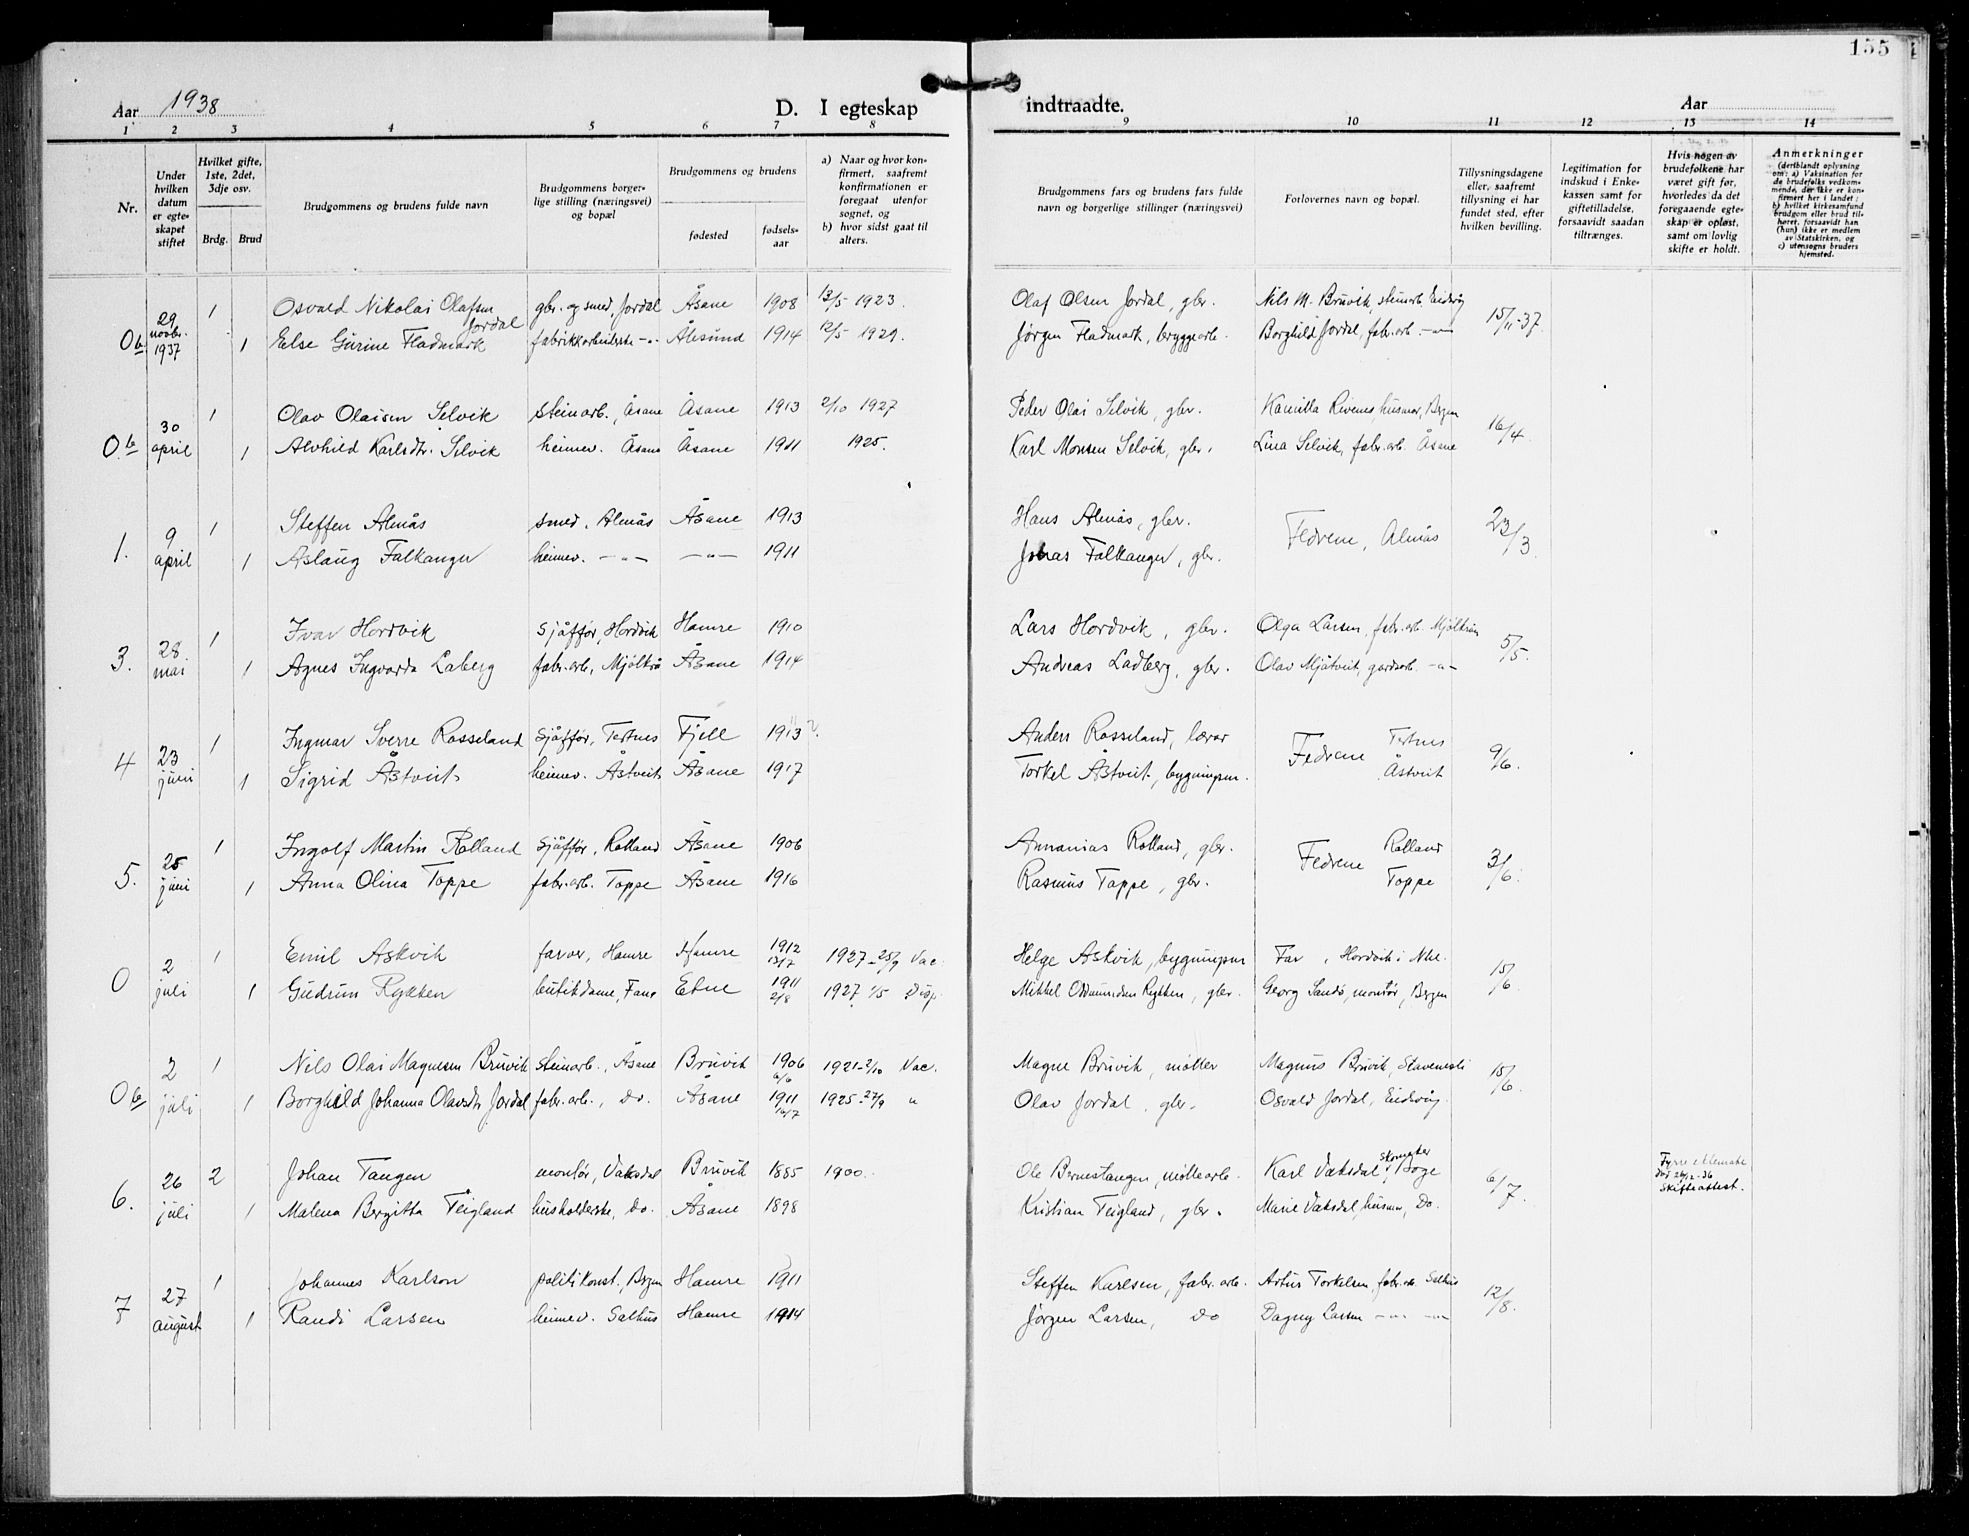 155
Aar 1938
D. I egteskap indtraadte.
Aar
1 2 3 4 5 6 7 8 9 10 11 12 13 14
Nr.
Under hvilken datum er egteskapet stiftet
Hvilket gifte, 1ste, 2det, 3dje osv.
Brdg. Brud
Brudgommens og brudens fulde navn
Brudgommens borgerlige stilling (næringsvei) og bopæl
Brudgommens og brudens
fødested
fødselsaar
a) Naar og hvor konfirmert, saafremt konfirmationen er foregaat utenfor sognet, og
b) hvor sidst gaat til alters.
Brudgommens fars og brudens fars fulde navn og borgerlige stillinger (næringsvei)
Forlovernes navn og bopæl.
Tillysningsdagene eller, saafremt tillysning ei har fundet sted, efter hvilken bevilling.
Legitimation for indskud i Enkekassen samt for giftetilladelse, forsaavidt saadan tiltrænges.
Hvis nogen av brudefolkene har været gift før, hvorledes da det foregaaende egteskap er opløst, samt om lovlig skifte er holdt.
Anmerkninger
(deriblandt oplysning om: a) Vaksination for de brudefolks vedkommende, der ikke er konfirmert her i landet; b) hvilket kirkesamfund brudgom eller brud tilhører, forsaavidt han (hun) ikke er medlem av Statskirken, og c) utensogns bruders hjemsted.
Ob 29 novbr. 1937 1 Osvald Nikolai Olafsen Jordal gbr. og smed, Jordal Åsane 1908 13/5 1923. Olaf Olsen Jordal, gbr. Nils M. Bruvik, steinarb. Eidsvåg 15/11-37.
1 Else Gurine Fladmark fabrikkarbeiderske -"- Ålesund 1914 12/5 1929. Jørgen Fladmark, bryggearb. Borghild Jordal, fabr.arb. -"-
Ob 30 april 1 Olav Olaisen Selvik steinarb., Åsane Åsane 1913 2/10 1927 Peder Olai Selvik, gbr. Kamilla Rivenes husmor, Bergen 16/4.
1 Alvhild Karlsdtr. Selvik heimev. Åsane Åsane 1911 1925. Karl Monsen Selvik, gbr. Lina Selvik, fabr.arb. Åsane
1. 9 april 1 Steffen Almås smed, Almås Åsane 1913 Hans Almås, gbr. Fedrene, Almås 23/3.
1 Aslaug Falkanger heimev. -"- -"- 1911 Jonas Falkanger, gbr.
3. 28 mai 1 Ivar Hordvik sjåffør, Hordvik Hamre 1910 Lars Hordvik, gbr. Olga Larsen, fabr.arb. Mjølkrån 5/5.
1 Agnes Ingvarda Laberg fabr.arb., Mjølkrå Åsane 1914 Andreas Ladberg, gbr. Olav Mjåtveit, gardsarb. -"-
4 23 juni 1 Ingmar Sverre Rosseland sjåffør, Tertnes Fjell 1913 Anders Rosseland, lærar Fedrene Tertnes 9/6.
1 Sigrid Åstveit heimev. Åstveit Åsane 1917 Torkel Åstveit, bygningsm. Åstveit
5. 25 juni 1 Ingolf Martin Rolland sjåffør, Rolland Åsane 1906 Annanias Rolland, gbr. Fedrene Rolland 3/6.
1 Anna Olina Toppe fabr.arb. Toppe Åsane 1916 Rasmus Toppe, gbr. Toppe
O 2 juli 1 Emil Askvik farver, Hamre Hamre 1912 13/7 1927-25/9 Vac. Helge Askvik, bygningsm Far, Hordvik i Nhl. 15/6.
1 Gudrun Rykken butikdame, Fana Etne 1911 2/8 1927 1/5 Disp. Mikkel Oddmundsen Rykken, gbr. Georg Sandø, montør, Bergen
Ob 2 juli 1 Nils Olai Magnusen Bruvik steinarb., Åsane Bruvik 1906 6/6 1921-2/10 Vac. Magne Bruvik, møller Magnus Bruvik, Stavenesli 15/6.
1 Borghild Johanna Olavsdtr Jordal fabr.arb., Do. Åsane 1911 14/7 1925-27/9 " Olav Jordal, gbr. Osvald Jordal, Eidsvåg.
6. 26 juli 2 Johan Tangen montør, Vaksdal Bruvik 1885 1900. Ole Bernestangen, møllearb. Karl Vaksdal, skomaker Boge 6/7. Fyrre ektemake død 26/12-36 Skifteattest.
1 Malena Bergitta Teigland husholderske, Do. Åsane 1898 Kristian Teigland, gbr. Marie Vaksdal, husmor, Do.
7 27 august 1 Johannes Karlson politikonst., Bergen Hamre 1911 Steffen Karlsen, fabr.arb. Artur Torkelsen, fabr.arb. Salhus 12/8.
1 Randi Larsen heimev. Salhus Hamre 1914 Jørgen Larsen, Do Dagny Larsen -"- -"-